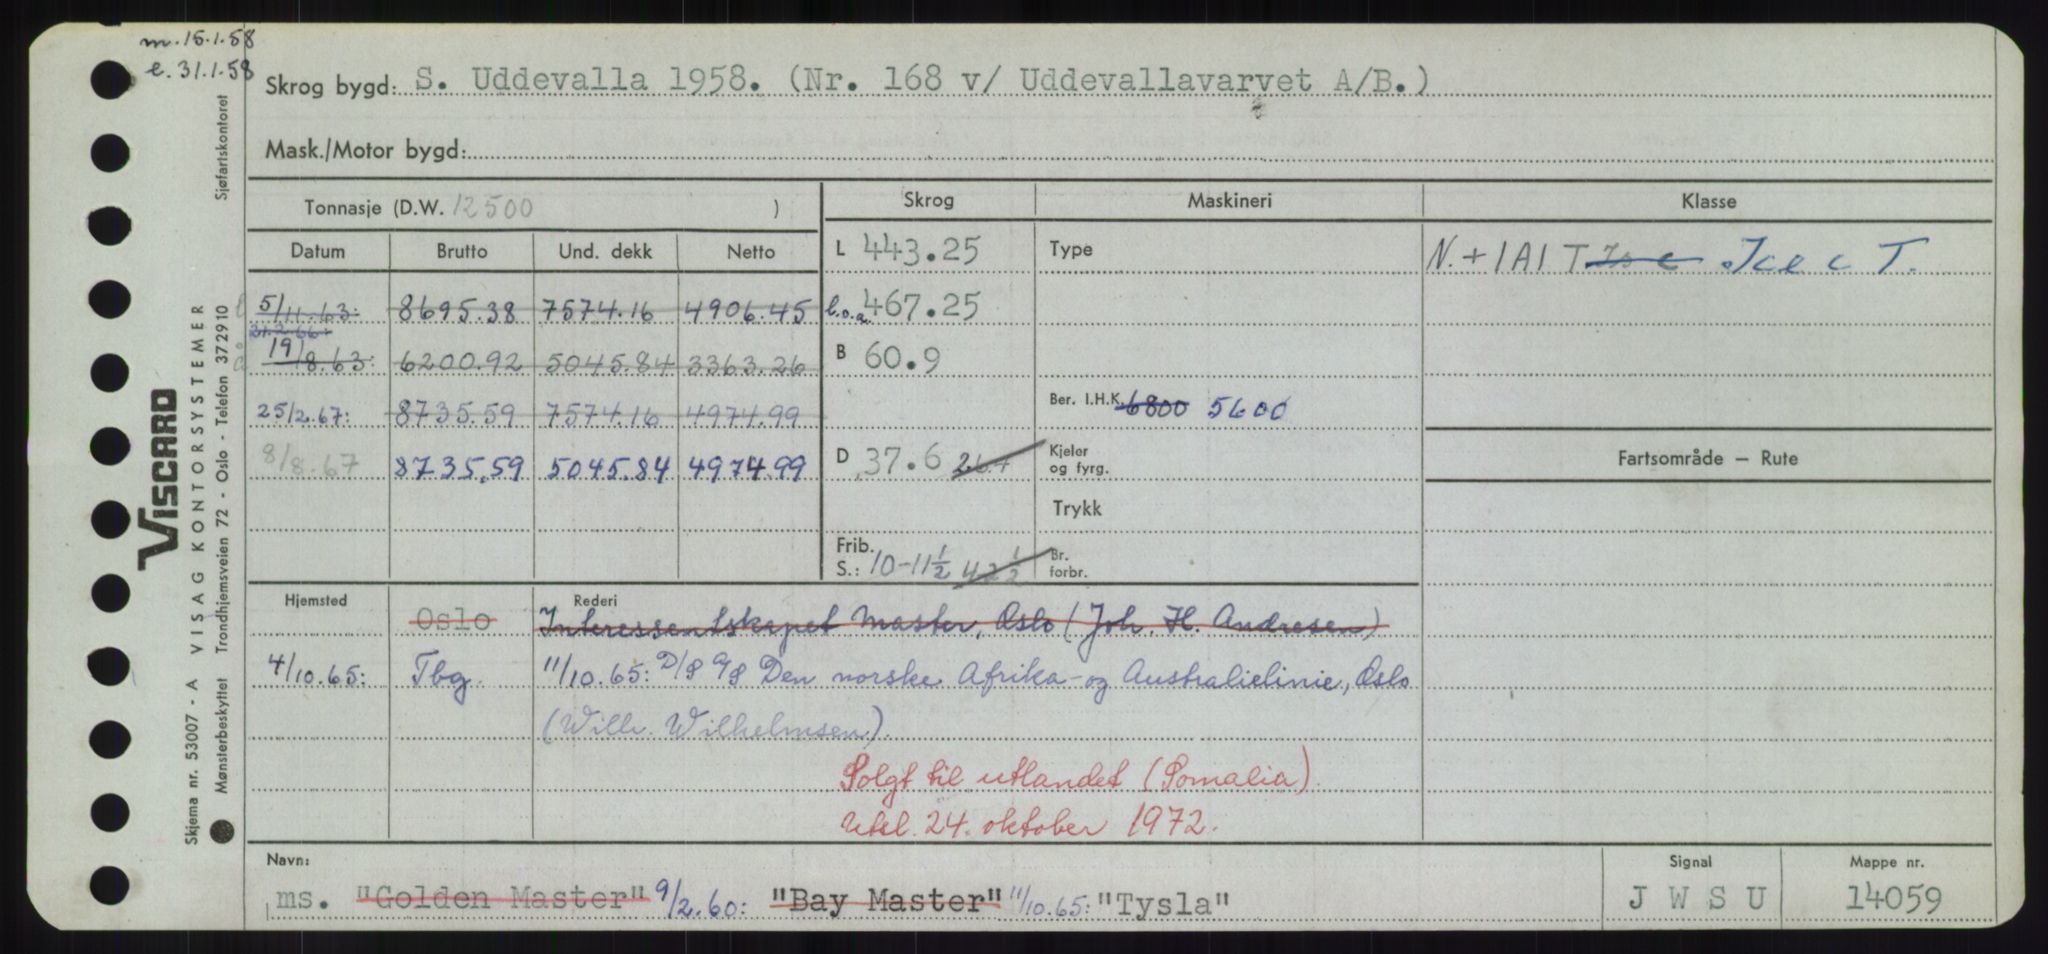 m. 15.1.58
e. 31.1.58
Skrog bygd: S. Uddevalla 1958. (Nr. 168 v/ Uddevallavarvet A/B.)
Mask./Motor bygd:
Tonnasje (D.W. 12500 )
Skrog Maskineri Klasse
Datum Brutto Und. dekk Netto
L 443.25 Type N. + 1A1 T Ice c Ice c T.
5/11.63: 8695.38 7574.16 4906.45 l.o.a. 467.25
31.2.66:
19/8.63: 6200.92 5045.84 3363.26 B 60.9
25/2.67: 8735.59 7574.16 4974.99 Ber. I.H.K. 6800 5600
8/8.67 8735.59 5045.84 4974.99 D 37.6 26.7 Kjeler og fyrg. Fartsområde – Rute
Trykk
Frib. S.: 10-11½ 4 2½ Br. forbr.
Hjemsted Rederi
Oslo Interessentskapet Master, Oslo (Joh. H. Andresen)
4/10.65: Tbg. 11/10.65: D/S A/S Den norske Afrika- og Australielinie, Oslo
(Wilh. Wilhelmsen).
Solgt til utlandet (Somalia).
Utsl. 24. oktober 1972.
Navn: Signal Mappe nr.
ms. "Golden Master" 9/2.60: "Bay Master" 11/10.65: "Tysla" J W S U 14059
Sjøfartskontoret
VISCARD
VISAG KONTORSYSTEMER
Trondhjemsveien 72 - Oslo - Telefon 372910
Skjema nr. 53007 - A
Mønsterbeskyttet